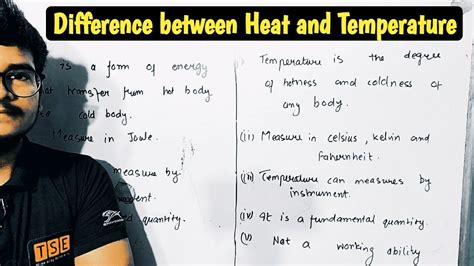 Difference between Heat and Temperature
is a form of energy
transfer from hot body
cold body.
Measure in Joule.
measure by
quantity.
TSE
Temperature is the degree
of hotness and coldness of
any body.
(ii) Measure in celsius, kelvin and
Fahernheit.
(iii) Temperature can measures by
instrument.
(iv) It is a fundamental quantity.
(v) Not a working ability